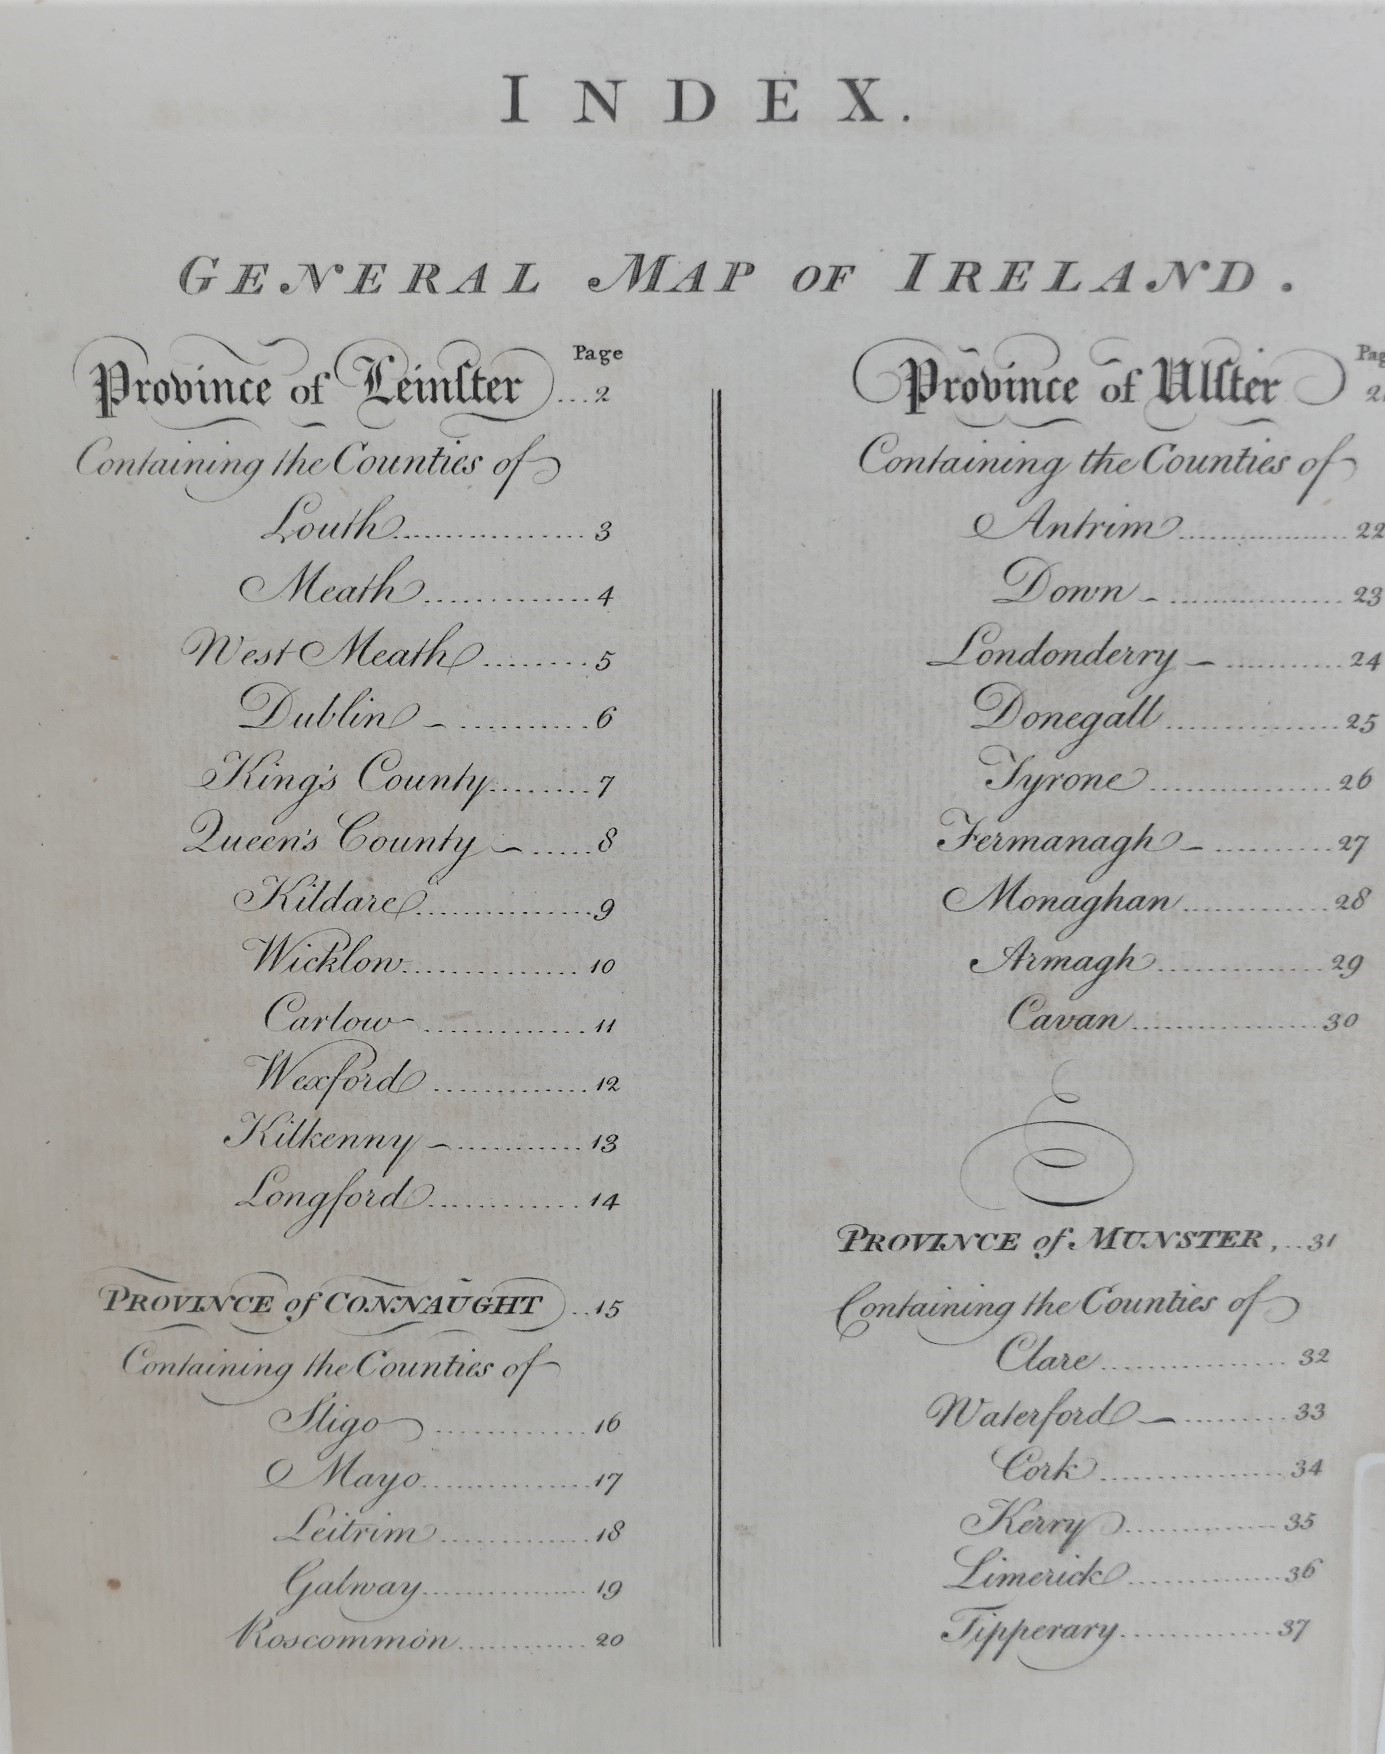 INDEX.
GENERAL MAP OF IRELAND.
Page
Province of Leinſter ...2
Containing the Counties of
Louth................. 3
Meath.............4
West Meath........5
Dublin – ...........6
King's County........7
Queen's County – .....8
Kildare...............9
Wicklow............... 10
Carlow .............. 11
Wexford .............12
Kilkenny – ...........13
Longford............. 14
PROVINCE of CONNAUGHT ..15
Containing the Counties of
Sligo ............. 16
Mayo..............17
Leitrim .............18
Galway............... 19
Roscommon........... 20
Province of Ulſter
Containing the Counties of
Antrim.................. 22
Down – .................23
Londonderry – ...........24
Donegall ................25
Tyrone .................26
Fermanagh – ...........27
Monaghan .............28
Armagh...............29
Cavan..................30
PROVINCE of MUNSTER, ..31
Containing the Counties of
Clare................. 32
Waterford – .........33
Cork..................34
Kerry...............35
Limerick..............36
Tipperary..............37